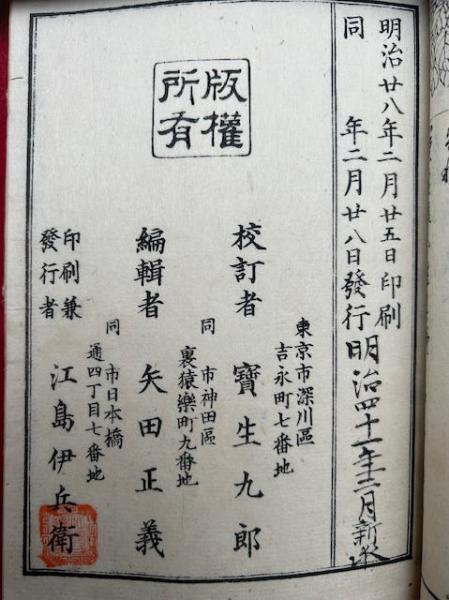 明治廿八年二月廿五日印刷
同　　年二月廿八日發行
明治四十一年三月新
版權
所有
東京市深川區
吉永町七番地
校訂者　寶生九郎
同　市神田區
裏猿樂町九番地
編輯者　矢田正義
同　市日本橋
通四丁目七番地
印刷兼
發行者　江島伊兵衛